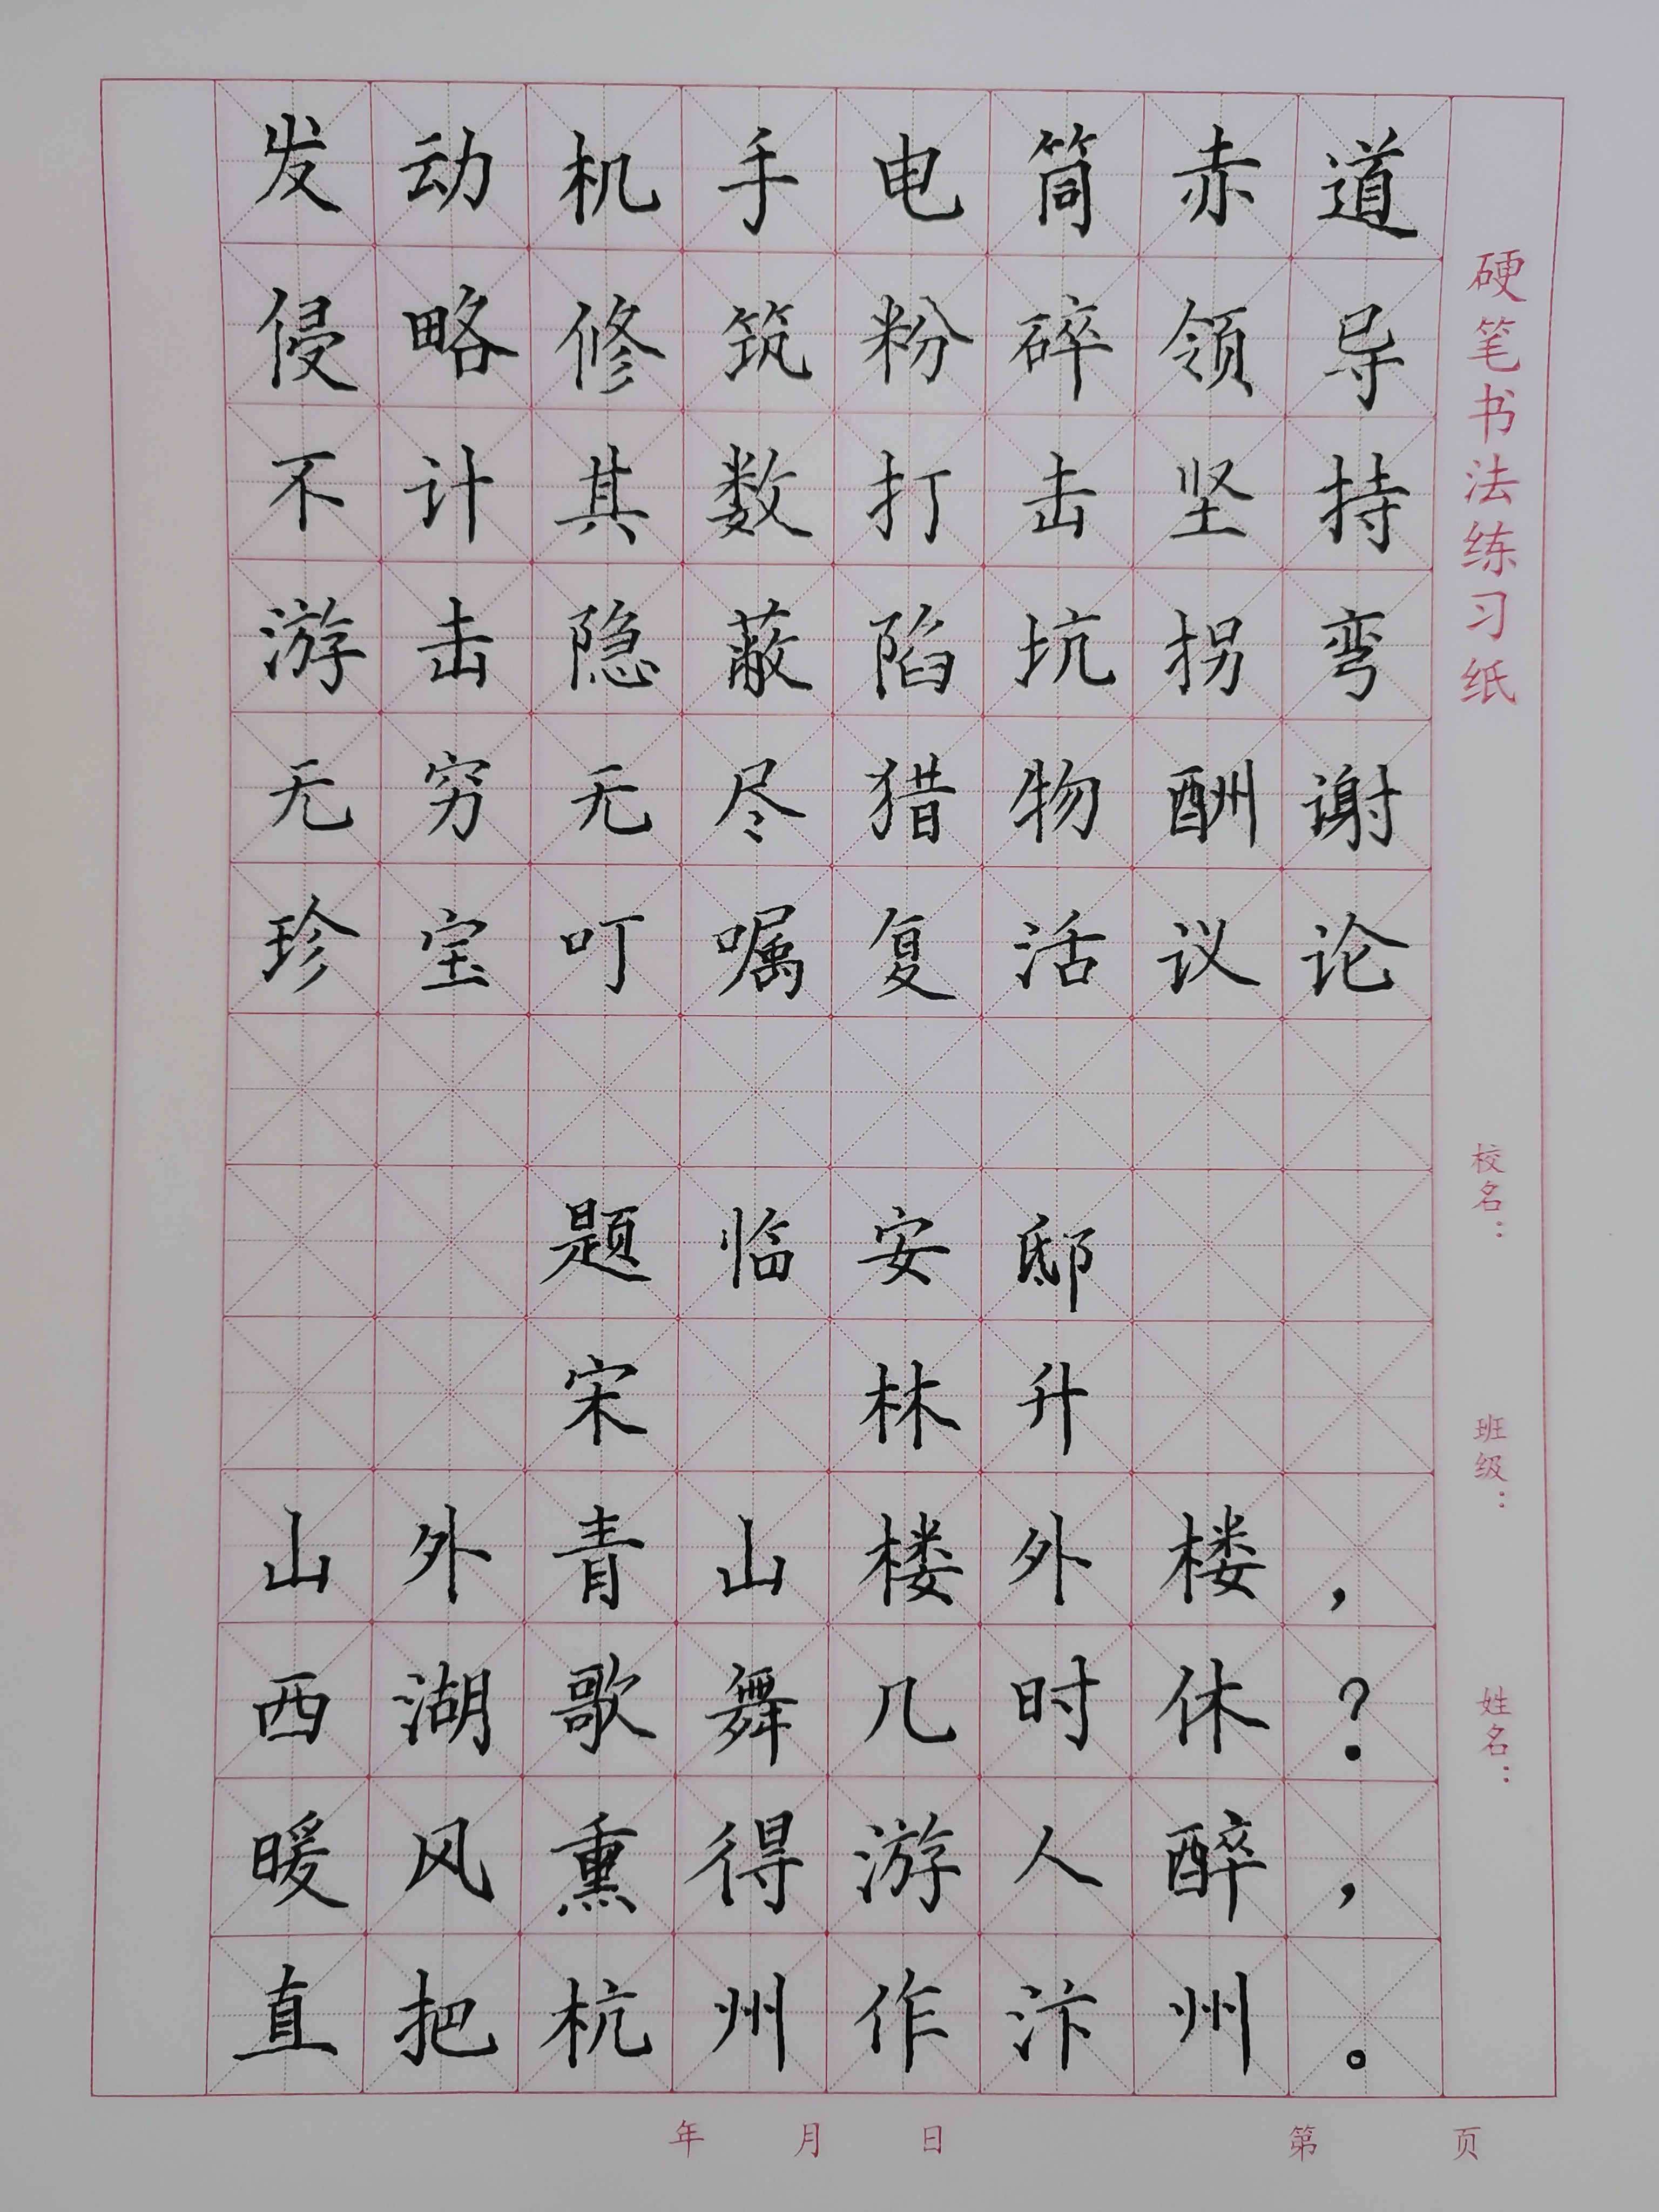 发动机手电筒赤道
侵略修筑粉碎领导
不计其数打击坚持
游击隐蔽陷坑拐弯
无穷无尽猎物酬谢
珍宝叮嘱复活议论
题临安邸
宋 林升
山外青山楼外楼，
西湖歌舞几时休？
暖风熏得游人醉，
直把杭州作汴州。
硬笔书法练习纸
校名：
班级：
姓名：
年 月 日 第 页